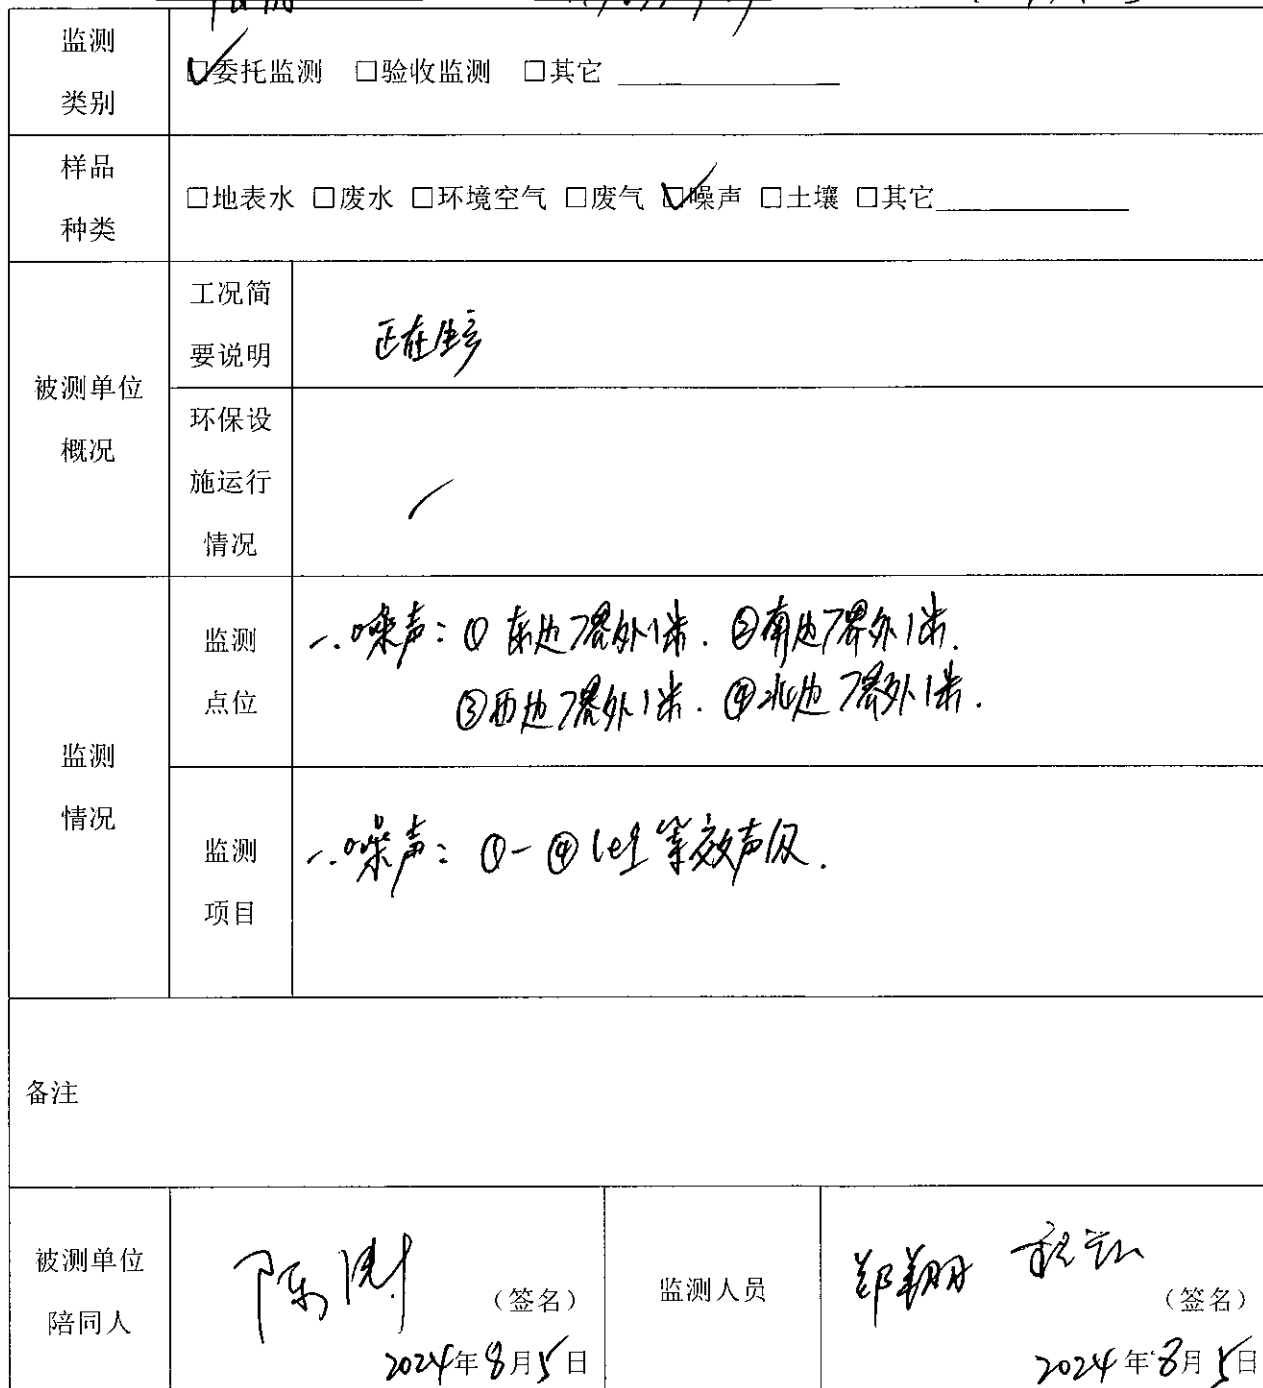 监测
类别
☑委托监测 □验收监测 □其它
样品
种类
□地表水 □废水 □环境空气 □废气 ☑噪声 □土壤 □其它
被测单位
概况
工况简
要说明
正在生产
环保设
施运行
情况
/
监测
情况
监测
点位
一.噪声: ① 东边厂界外1米. ②南边厂界外1米.
③西边厂界外1米. ④北边厂界外1米.
监测
项目
一.噪声: ①-④ 等效声级.
备注
被测单位
陪同人
陈刚
(签名)
2024年8月5日
监测人员
郑翔
(签名)
2024年8月5日